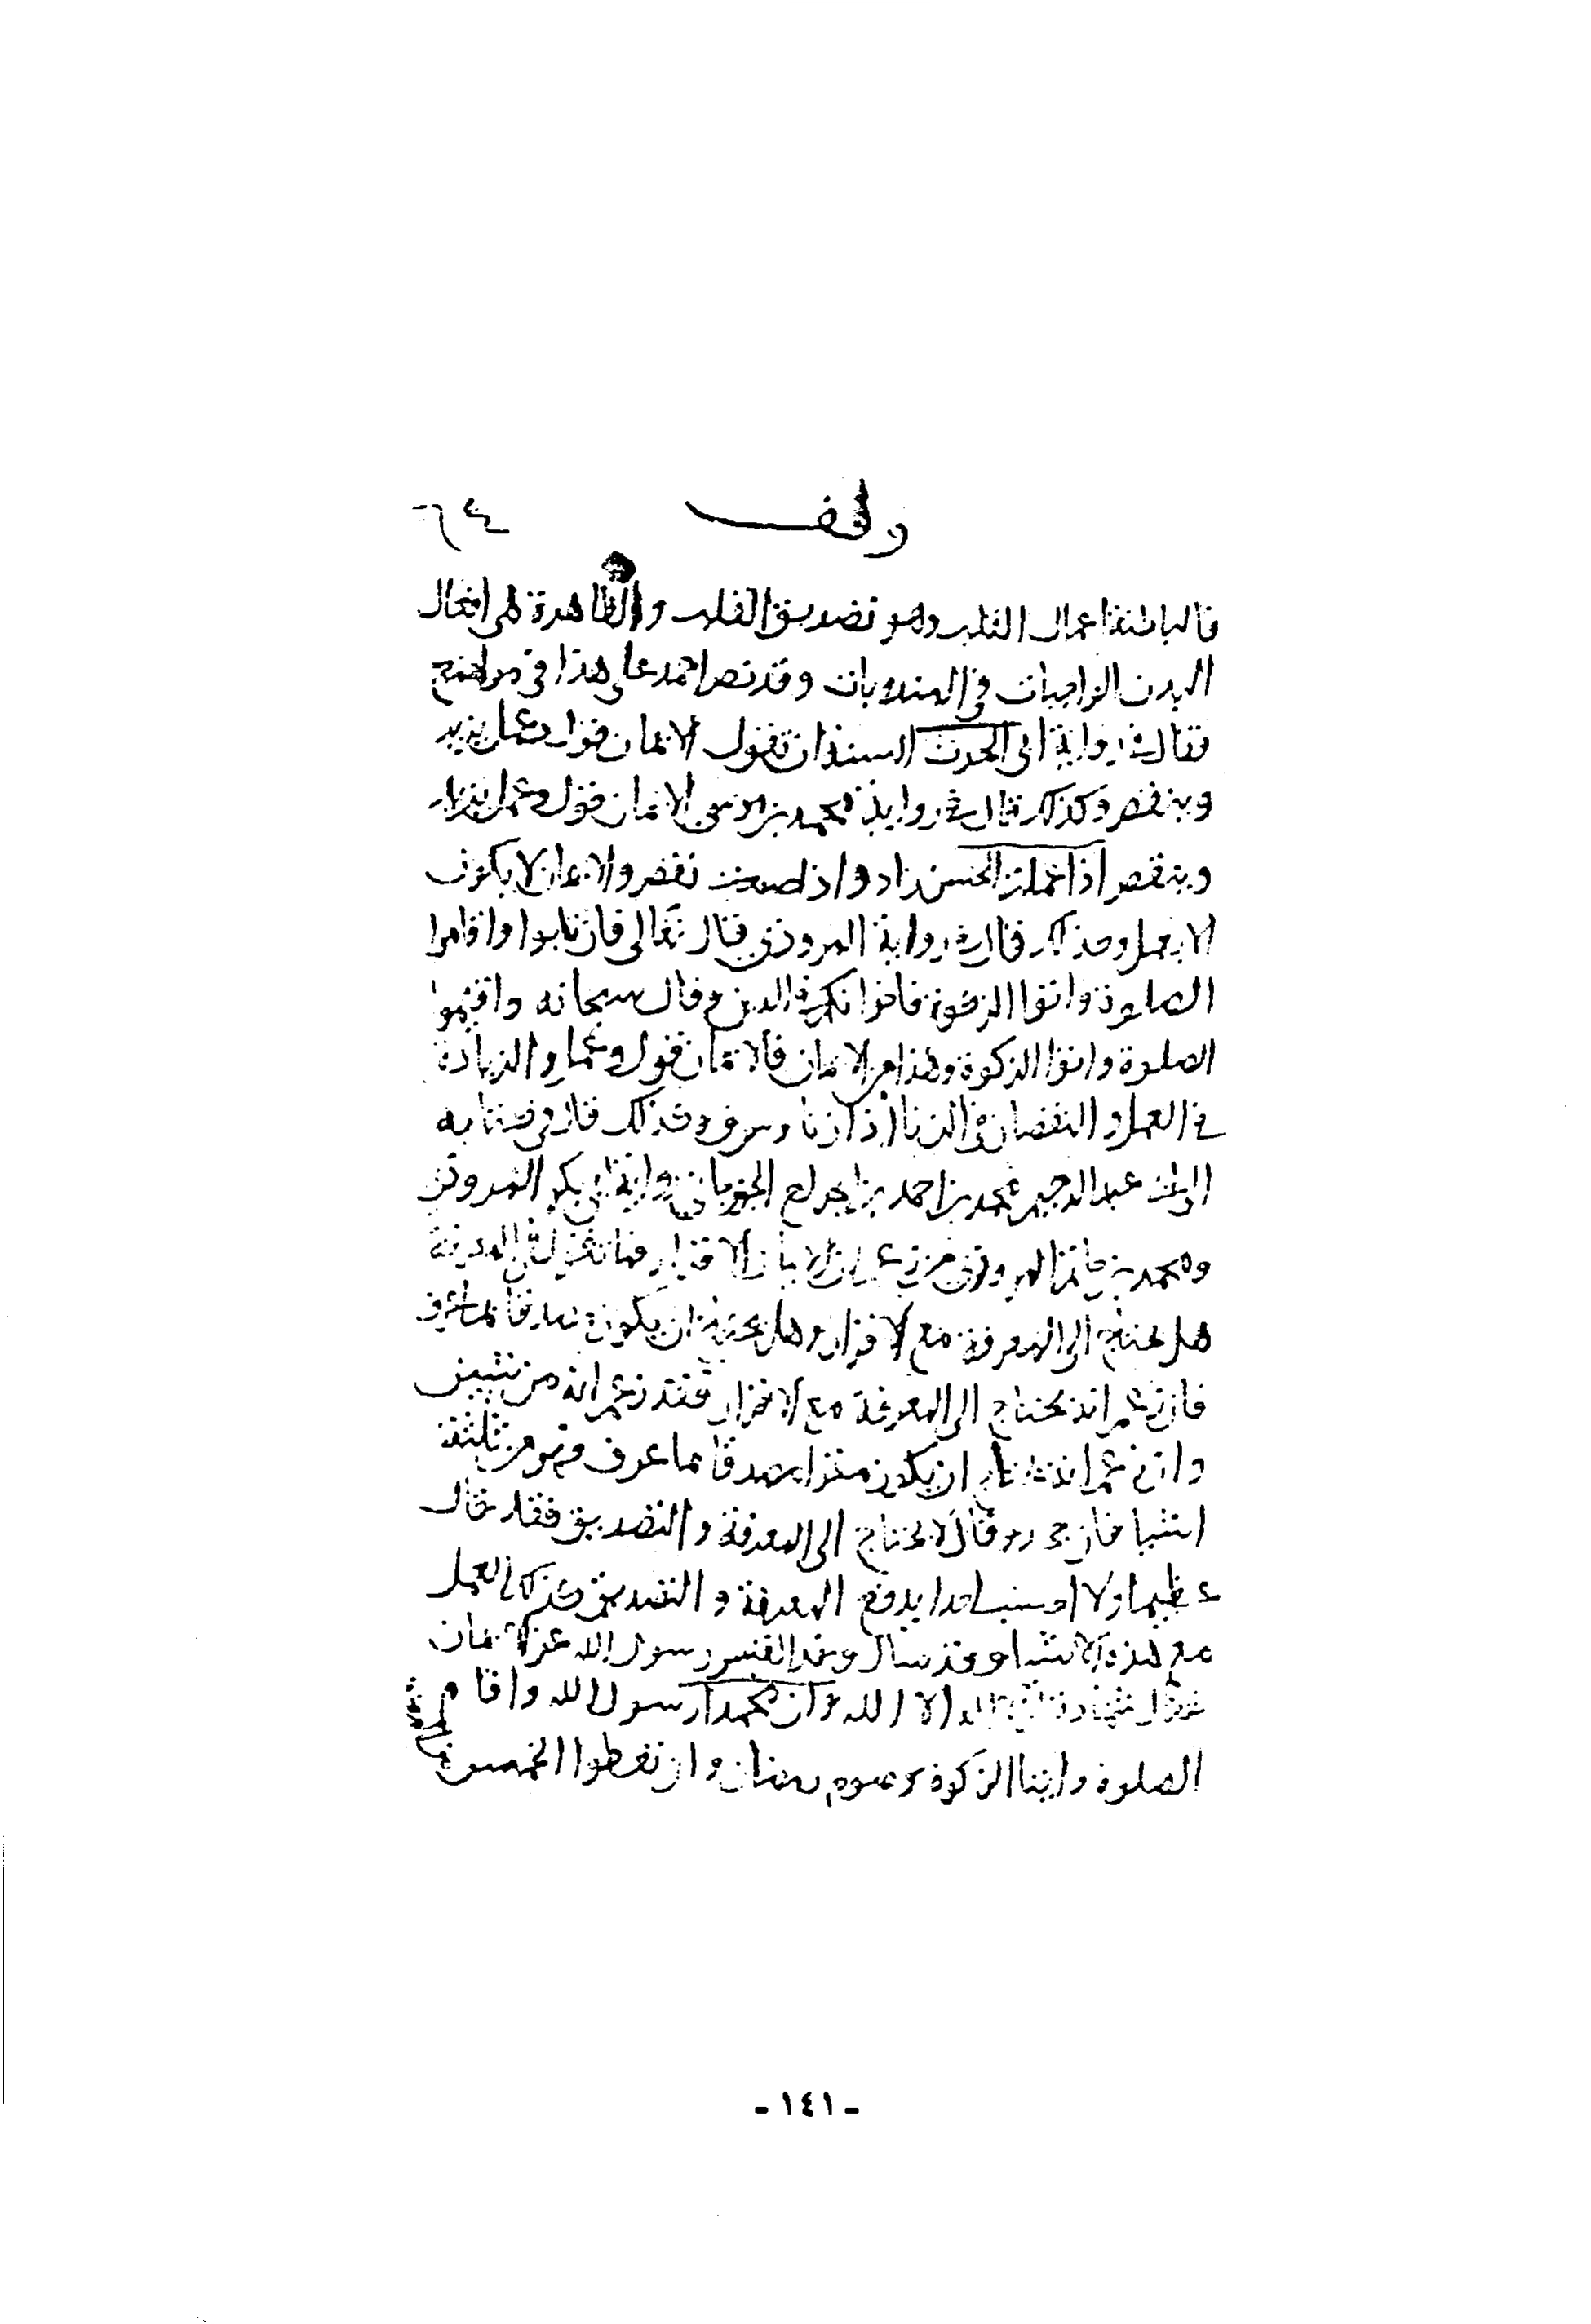 وقف
فالباطنة اعمال القلب وهو تصديق القلب والظاهرة هي افعال
البدن الواجبات والمندوبات وقد نص احمد على هذا في مواضع
فقال في رواية ابي الحرث السنة ان تقول الايمان قول وعمل يزيد
وينقص وكذلك قال في رواية محمد بن موسى الايمان قول وعمل يزيد
وينقص اذا عملت الحسن زاد واذا ضيعت نقص والايمان لا يكون
الا بعمل وكذلك قال في رواية المروذي قال تعالى فان تابوا واقاموا
الصلوة واتوا الزكوة فاخوانكم في الدين وقال سبحانه واقيموا
الصلوة واتوا الزكوة وهذا من الايمان فالايمان قول وعمل والزيادة
في العمل والنقصان في الزنا اذا زنا وسرق وكذلك قال
عبد الرحيم محمد بن احمد بن الجراح الجوزجاني رواية ابي بكر المروذي
ومحمد بن حاتم المروذي من زعم ان الايمان الاقرار فما تقول في المعرفة
هل يحتاج الى المعرفة مع الاقرار وهل يحتاج ان يكون مصدقا بما عرف
فان زعم انه يحتاج الى المعرفة مع الاقرار فقد زعم انه من شيئين
وان زعم انه يحتاج ان يكون مقرا ومصدقا بما عرف فهو من ثلثة
اشيا فان جحد وقال لا يحتاج الى المعرفة والتصديق فقد قال
عظيما ولا احسب احدا يدفع المعرفة والتصديق وكذلك العمل
مع هذه الاشيا وقد سال وفد القيس رسول الله عن الايمان
فقال شهادة ان لا اله الا الله وان محمدا رسول الله واقام
الصلوة وايتا الزكوة وصوم رمضان وان تعطوا الخمس
- ١٤١ -